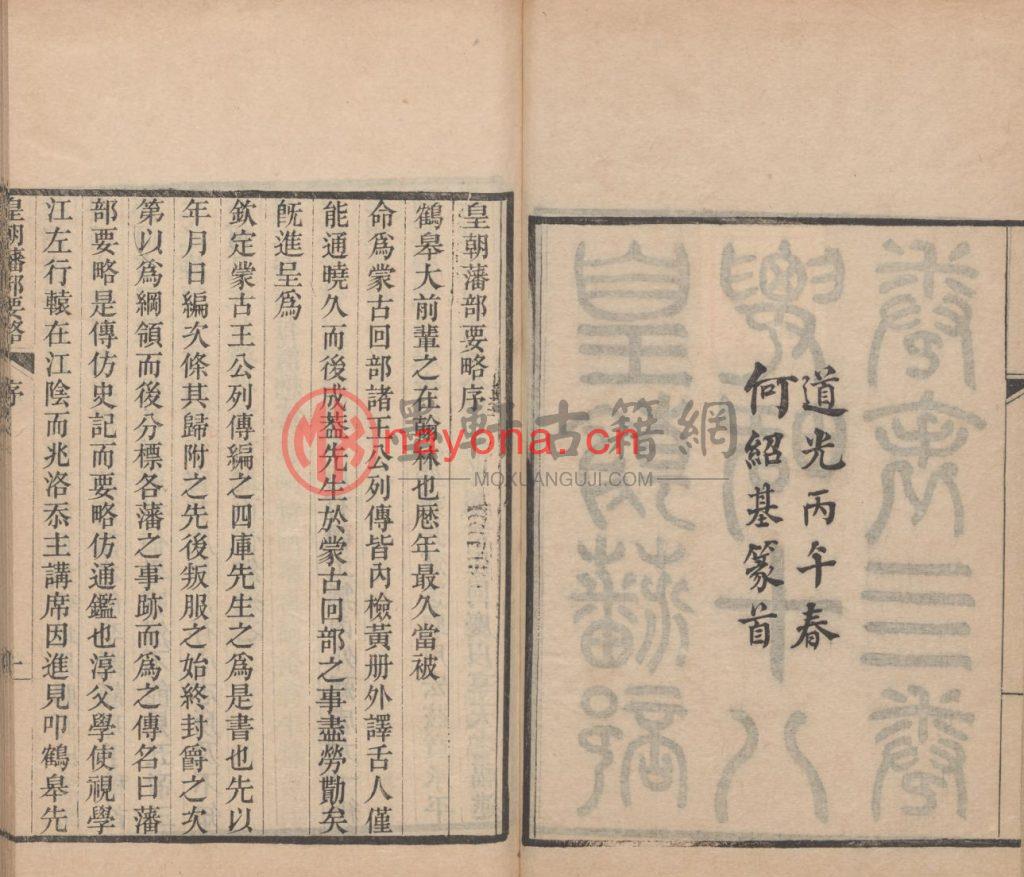 道光丙午春
何紹基篆首
皇朝藩部要略序
鶴皋大前輩之在翰林也厯年最久當被
命爲蒙古回部諸王公列傳皆內檢黃册外譯舌人僅
能通曉久而後成葢先生於蒙古回部之事盡勞勩矣
旣進呈爲
欽定蒙古王公列傳編之四庫先生之爲是書也先以
年月日編次條其歸附之先後叛服之始終封爵之次
第以爲綱領而後分標各藩之事跡而爲之傳名曰藩
部要略是傳仿史記而要略仿通鑑也淳父學使視學
江左行轅在江陰而兆洛忝主講席因進見叩鶴皋先
皇朝藩部要略 序 一
墨軒古籍網
nayona.cn
MOXUANGUJI.COM